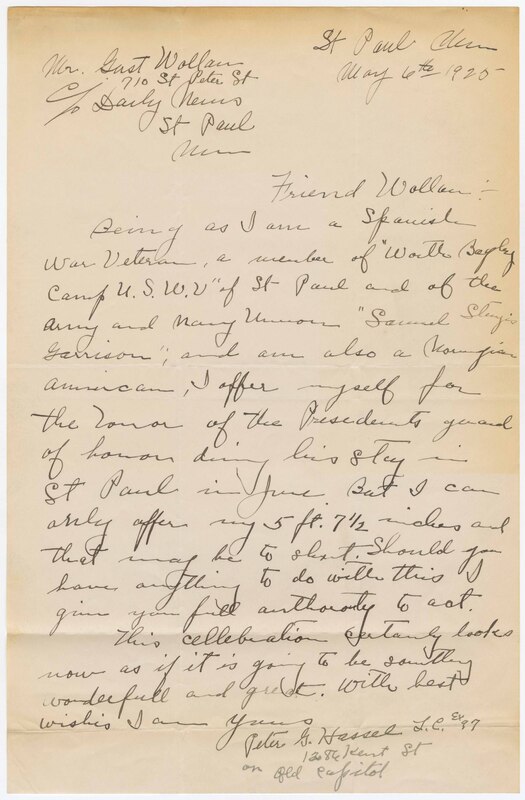 St Paul Minn
May 6th 1925
Mr. Gust Wollan
710 St Peter St
c/o Daily News
St Paul
Minn
Friend Wollan :-
Being as I am a Spanish
War Veteran, a member of "Worth Bagley
Camp U.S.W.V" of St Paul and of the
army and Navy Union "Samuel Sturgis
Garrison"; and am also a Norwegian
american, I offer myself for
the honor of the Presidents guard
of honor during his stay in
St Paul in June. But I can
only offer my 5 ft. 7½ inches and
that may be to short. Should you
have anything to do with this I
give you full authority to act.
This cellebration certanly looks
now as if it is going to be something
wonderfull and great. With best
wishis I am Yours
Peter G. Hassel L.C. Ex 97
Kent St
on Old Capitol